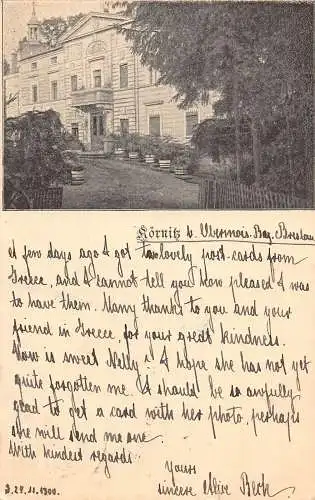 Körnitz b. Obernois. Bez. Breslau
A few days ago I got two lovely post-cards from
Greece, and I cannot tell you how pleased I was
to have them. Many thanks to you and your
friend in Greece, for your great kindness.
How is sweet Nelly? I hope she has not yet
quite forgotten me. I should be so awfully
glad to get a card with her photo, perhaps
she will send me one.
With kindest regards
Yours
sincere Beck
29.11.1900.